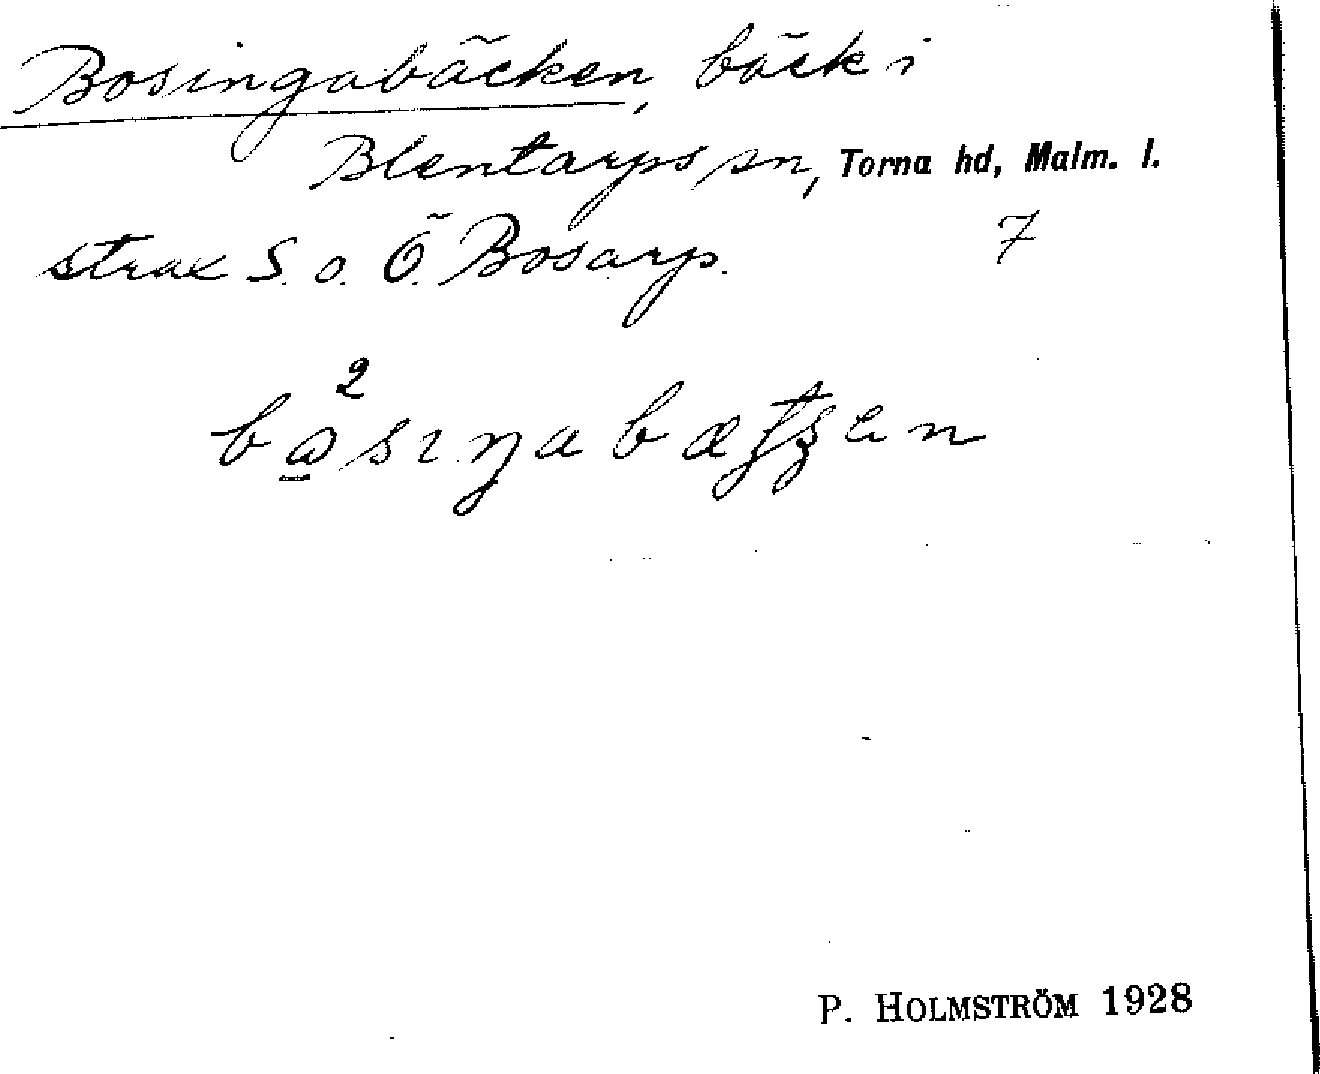 Bosingabäcken, bäck i
Blentarps sn, Torna hd, Malm. l.
strax S. o. Ö. Bosarp. 7
P. HOLMSTRÖM 1928